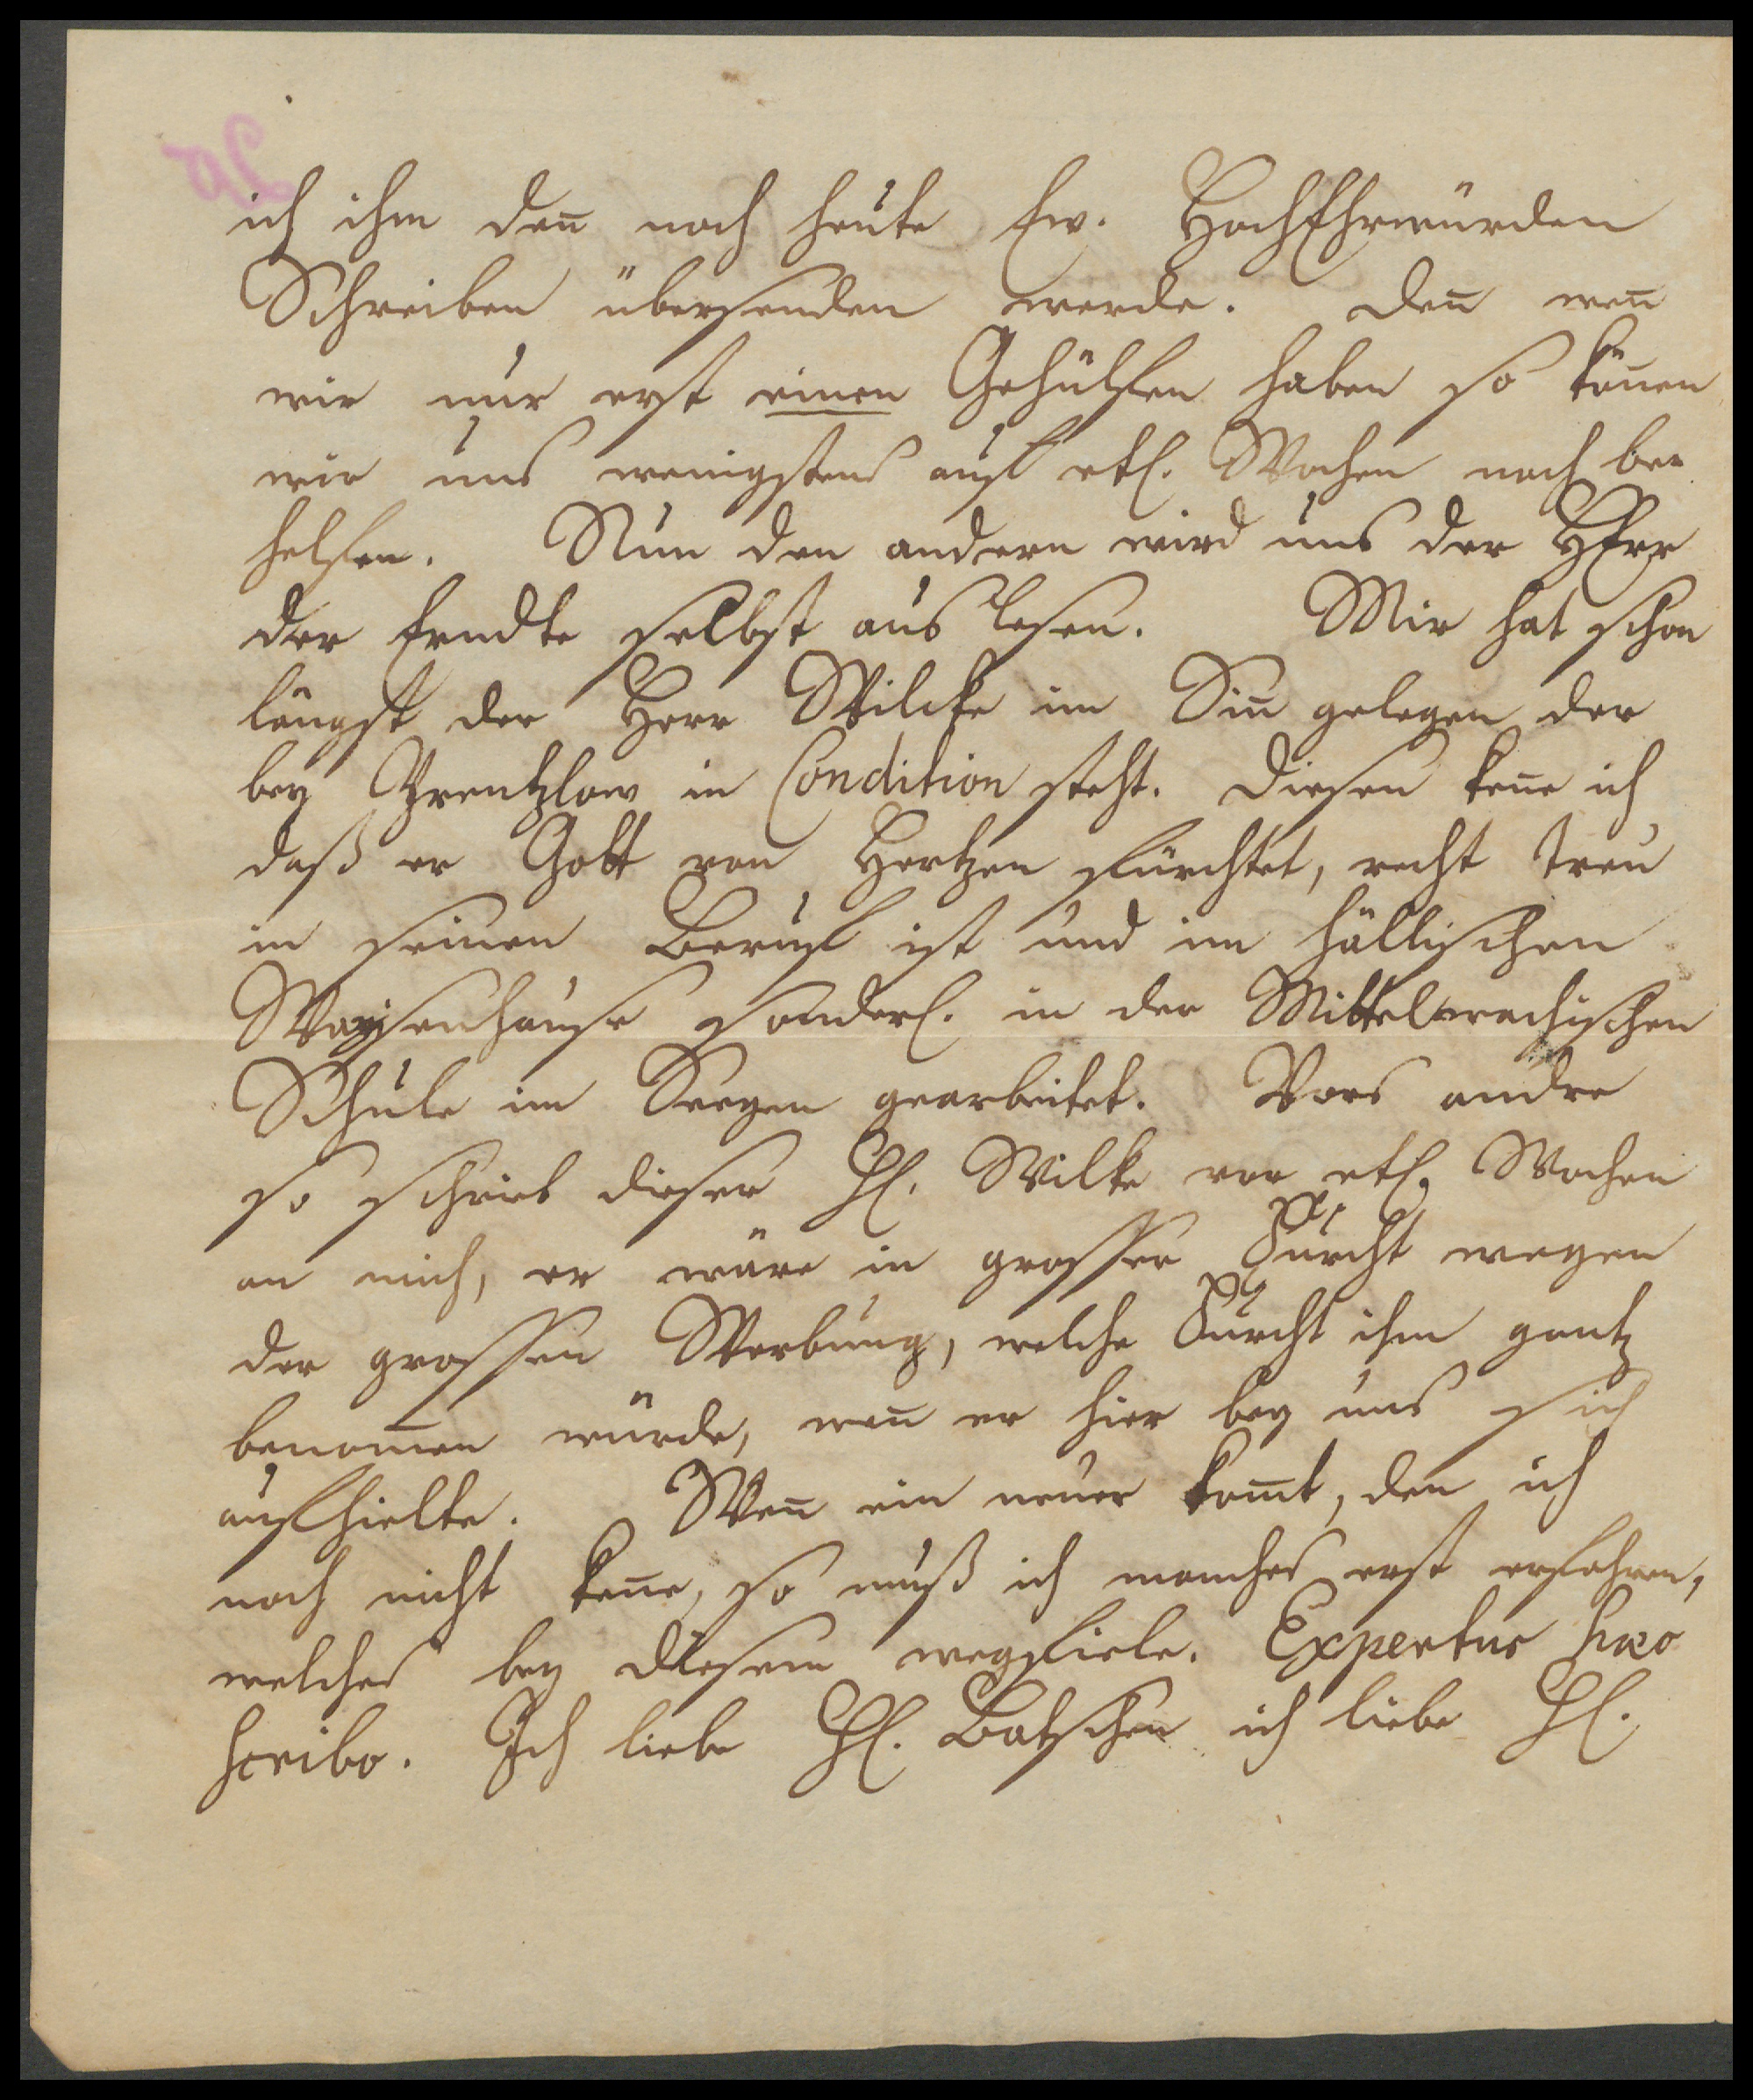 ich ihm deñ noch heute Ew. HochEhrwürden
Schreiben übersenden werde. Deñ weñ
wir nur erst einen Gehülfen haben so köñen
wir uns wenigstens auf etl. Wochen noch be-
helfen. Nun den andern wird uns der HErr
der Erndte selbst aus lesen. Mir hat schon
längst der Herr Wilcke im Siñ gelegen der
bey Prentzlow in Condition steht. Diesen keñe ich
daß er Gott von Hertzen fürchtet, recht treu
in seinen Beruf ist und im hällischen
Waysenhause sonderl. in der Mittelwachischen
Schule im Seegen gearbeitet. Vors andre
so schrieb dieser H. Wilke vor etl. Wochen
an mich, er wäre in grosser Furcht wegen
der grossen Werbung, welche Furcht ihm gantz
benom̄en würde, weñ er hier bey uns sich
aufhielte. Weñ ein neuer kom̄t, den ich
noch nicht keñe, so muß ich manches erst erfahren,
welches bey diesem wegfiele. Expertus hæc
scribo. Ich liebe H. Batschen ich liebe H.